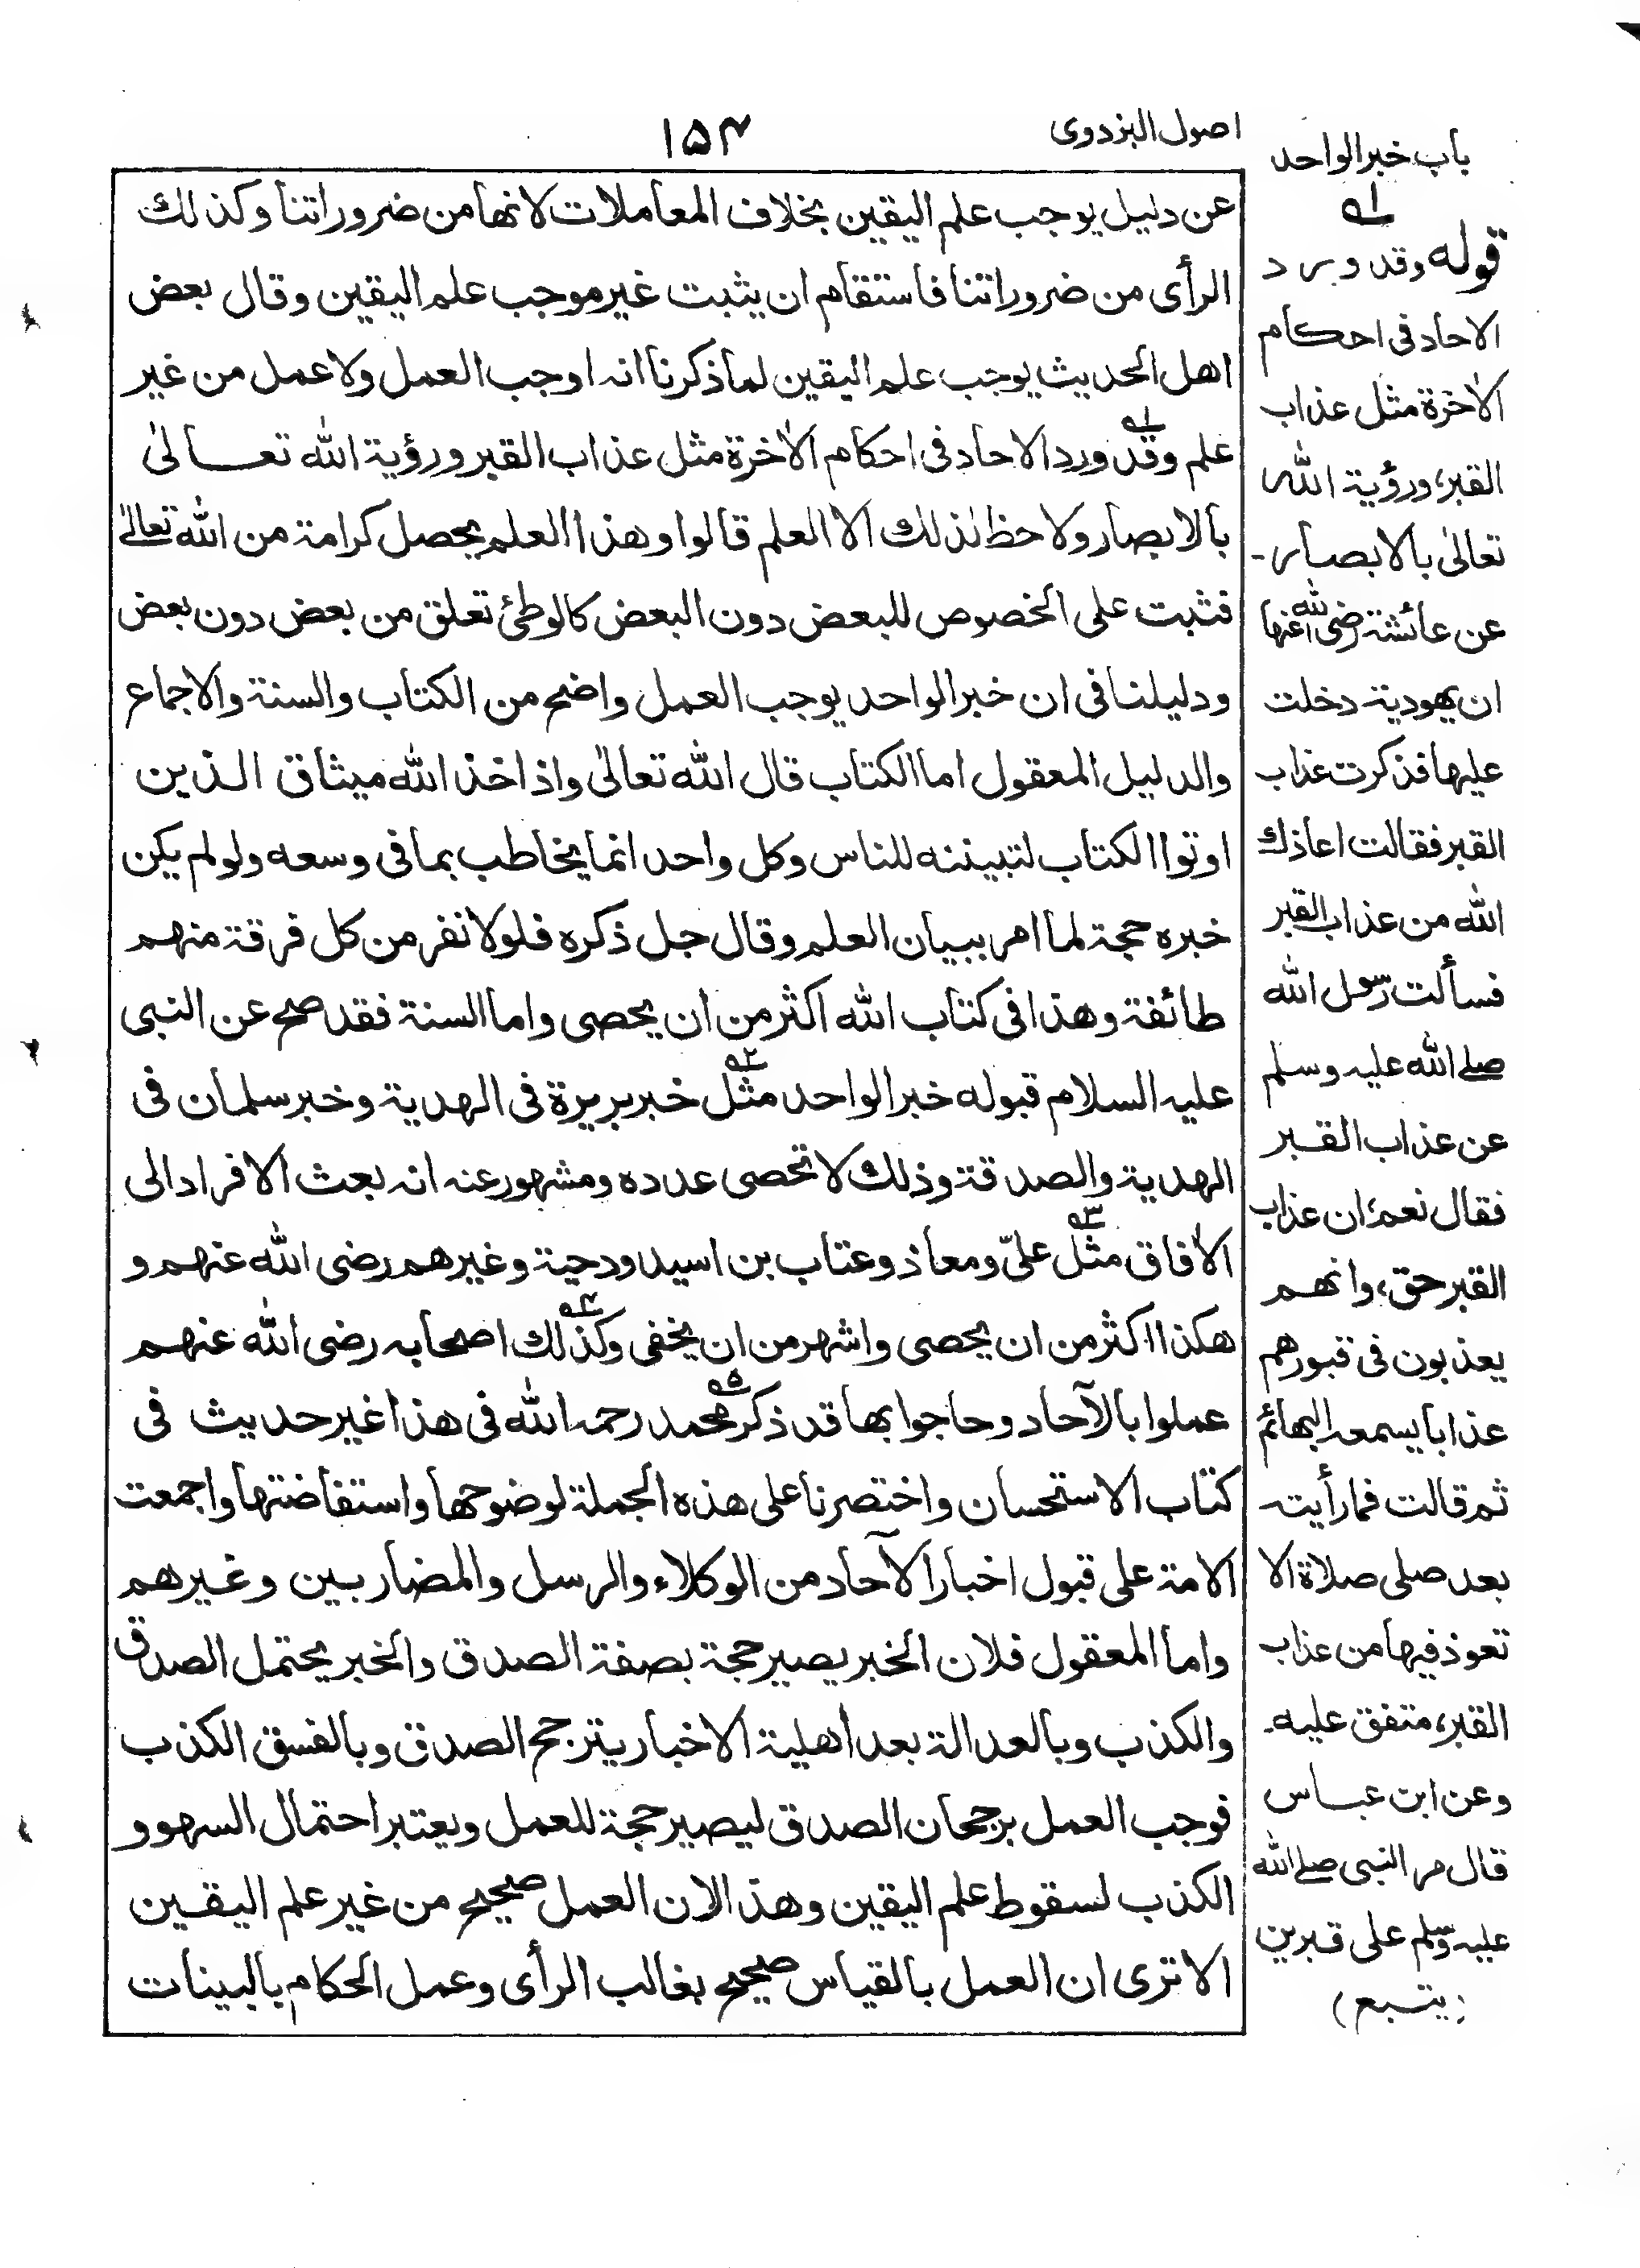 اصول البزدوى
١٥٤
باب خبر الواحد
عن دليل يوجب علم اليقين بخلاف المعاملات لانها من ضروراتنا وكذلك
الرأى من ضروراتنا فاستقام ان يثبت غير موجب علم اليقين وقال بعض
اهل الحديث يوجب علم اليقين لما ذكرنا انه اوجب العمل ولا عمل من غير
علم وقد ورد الاحاد فى احكام الاٰخرة مثل عذاب القبر ورؤية الله تعالىٰ
بالابصار ولا حظ لذلك الا العلم قالوا وهذا العلم يحصل كرامة من الله تعالىٰ
فثبت على الخصوص للبعض دون البعض كالوطئ تعلق من بعض دون بعض
ودليلنا فى ان خبر الواحد يوجب العمل واضح من الكتاب والسنة والاجماع
والدليل المعقول اما الكتاب قال الله تعالىٰ واذ اخذ الله ميثاق الذين
اوتوا الكتاب لتبيننه للناس وكل واحد انما يخاطب بما فى وسعه ولو لم يكن
خبره حجة لما امر ببيان العلم وقال جل ذكره فلولا نفر من كل فرقة منهم
طائفة وهذا فى كتاب الله اكثر من ان يحصى واما السنة فقد صح عن النبى
عليه السلام قبوله خبر الواحد مثل٢ خبر بريرة فى الهدية وخبر سلمان فى
الهدية والصدقة وذلك لا تحصى عدده ومشهور عنه انه بعث الافراد الى
الاٰفاق مثل٣ علىّ ومعاذ وعتاب بن اسيد ودحية وغيرهم رضى الله عنهم و
هكذا اكثر من ان يحصى واشهر من ان يخفى وكذلك٤ اصحابه رضى الله عنهم
عملوا بالآحاد وحاجوا بها قد ذكر محمد٥ رحمه الله فى هذا غير حديث فى
كتاب الاستحسان واختصرنا على هذه الجملة لوضوحها واستفاضتها واجمعت
الامة على قبول اخبار الآحاد من الوكلاء والرسل والمضاربين وغيرهم
واما المعقول فلان الخبر يصير حجة بصفة الصدق والخبر يحتمل الصدق
والكذب وبالعدالة بعد أهلية الاخبار يترجح الصدق وبالفسق الكذب
فوجب العمل برجحان الصدق ليصير حجة للعمل ويعتبر احتمال السهو و
الكذب لسقوط علم اليقين وهذا لان العمل صحيح من غير علم اليقين
الا ترى ان العمل بالقياس صحيح بغالب الرأى وعمل الحكام بالبينات
١
قوله وقد ورد
الاحاد فى احكام
الاٰخرة مثل عذاب
القبر، ورؤية الله
تعالىٰ بالابصار-
عن عائشة رضى الله عنها
ان يهودية دخلت
عليها فذكرت عذاب
القبر فقالت اعاذك
الله من عذاب القبر
فسألت رسول الله
صلے الله عليه وسلم
عن عذاب القبر
فقال نعم؛ ان عذاب
القبر حق، وانهم
يعذبون فى قبورهم
عذابا يسمعه البهائم
ثم قالت فما رأيته
بعد صلى صلاة الا
تعوذ فيها من عذاب
القبر، متفق عليه-
وعن ابن عباس
قال مر النبى صلے الله
عليه وسلم على قبرين
(يتبع)